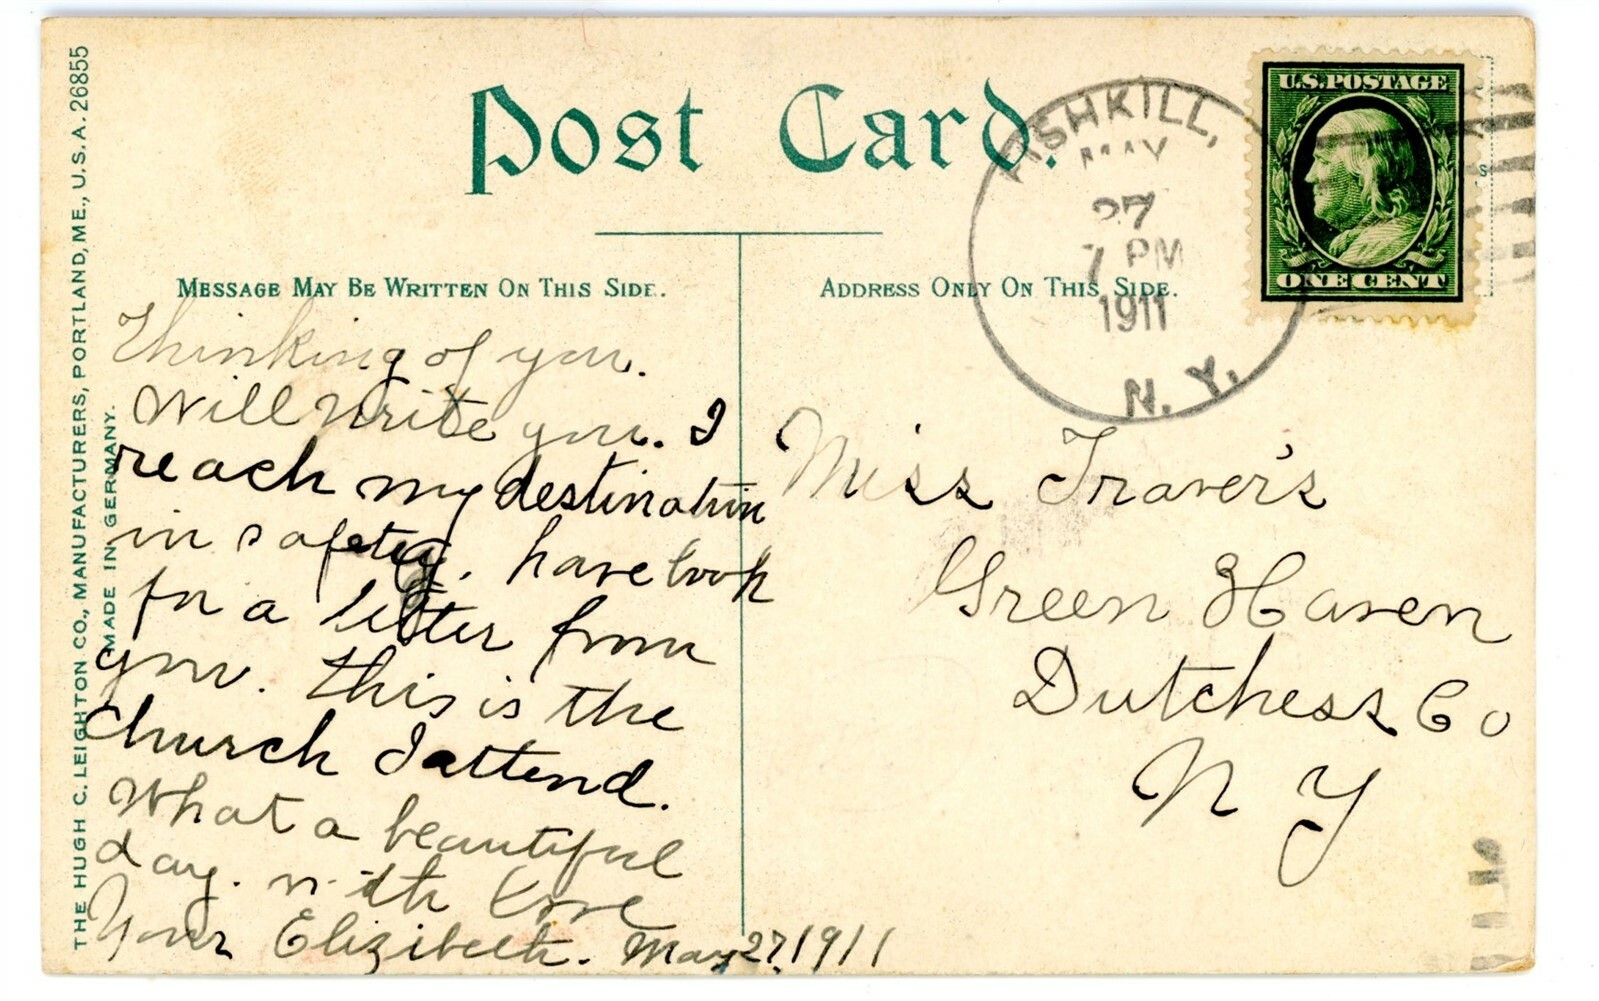 Post Card.
MESSAGE MAY BE WRITTEN ON THIS SIDE.
Thinking of you.
Will write you. I
reach my destination
in safety. have look
for a letter from
you. This is the
church I attend.
What a beautiful
day. with love
Your Elizibeth. May 27/1911
ADDRESS ONLY ON THIS SIDE.
Miss Traver's
Green Haven
Dutchess Co
N Y
FISHKILL,
MAY
27
7 PM
1911
N. Y.
U.S. POSTAGE
ONE CENT
THE HUGH C. LEIGHTON CO., MANUFACTURERS, PORTLAND, ME., U.S.A. 26855
MADE IN GERMANY.